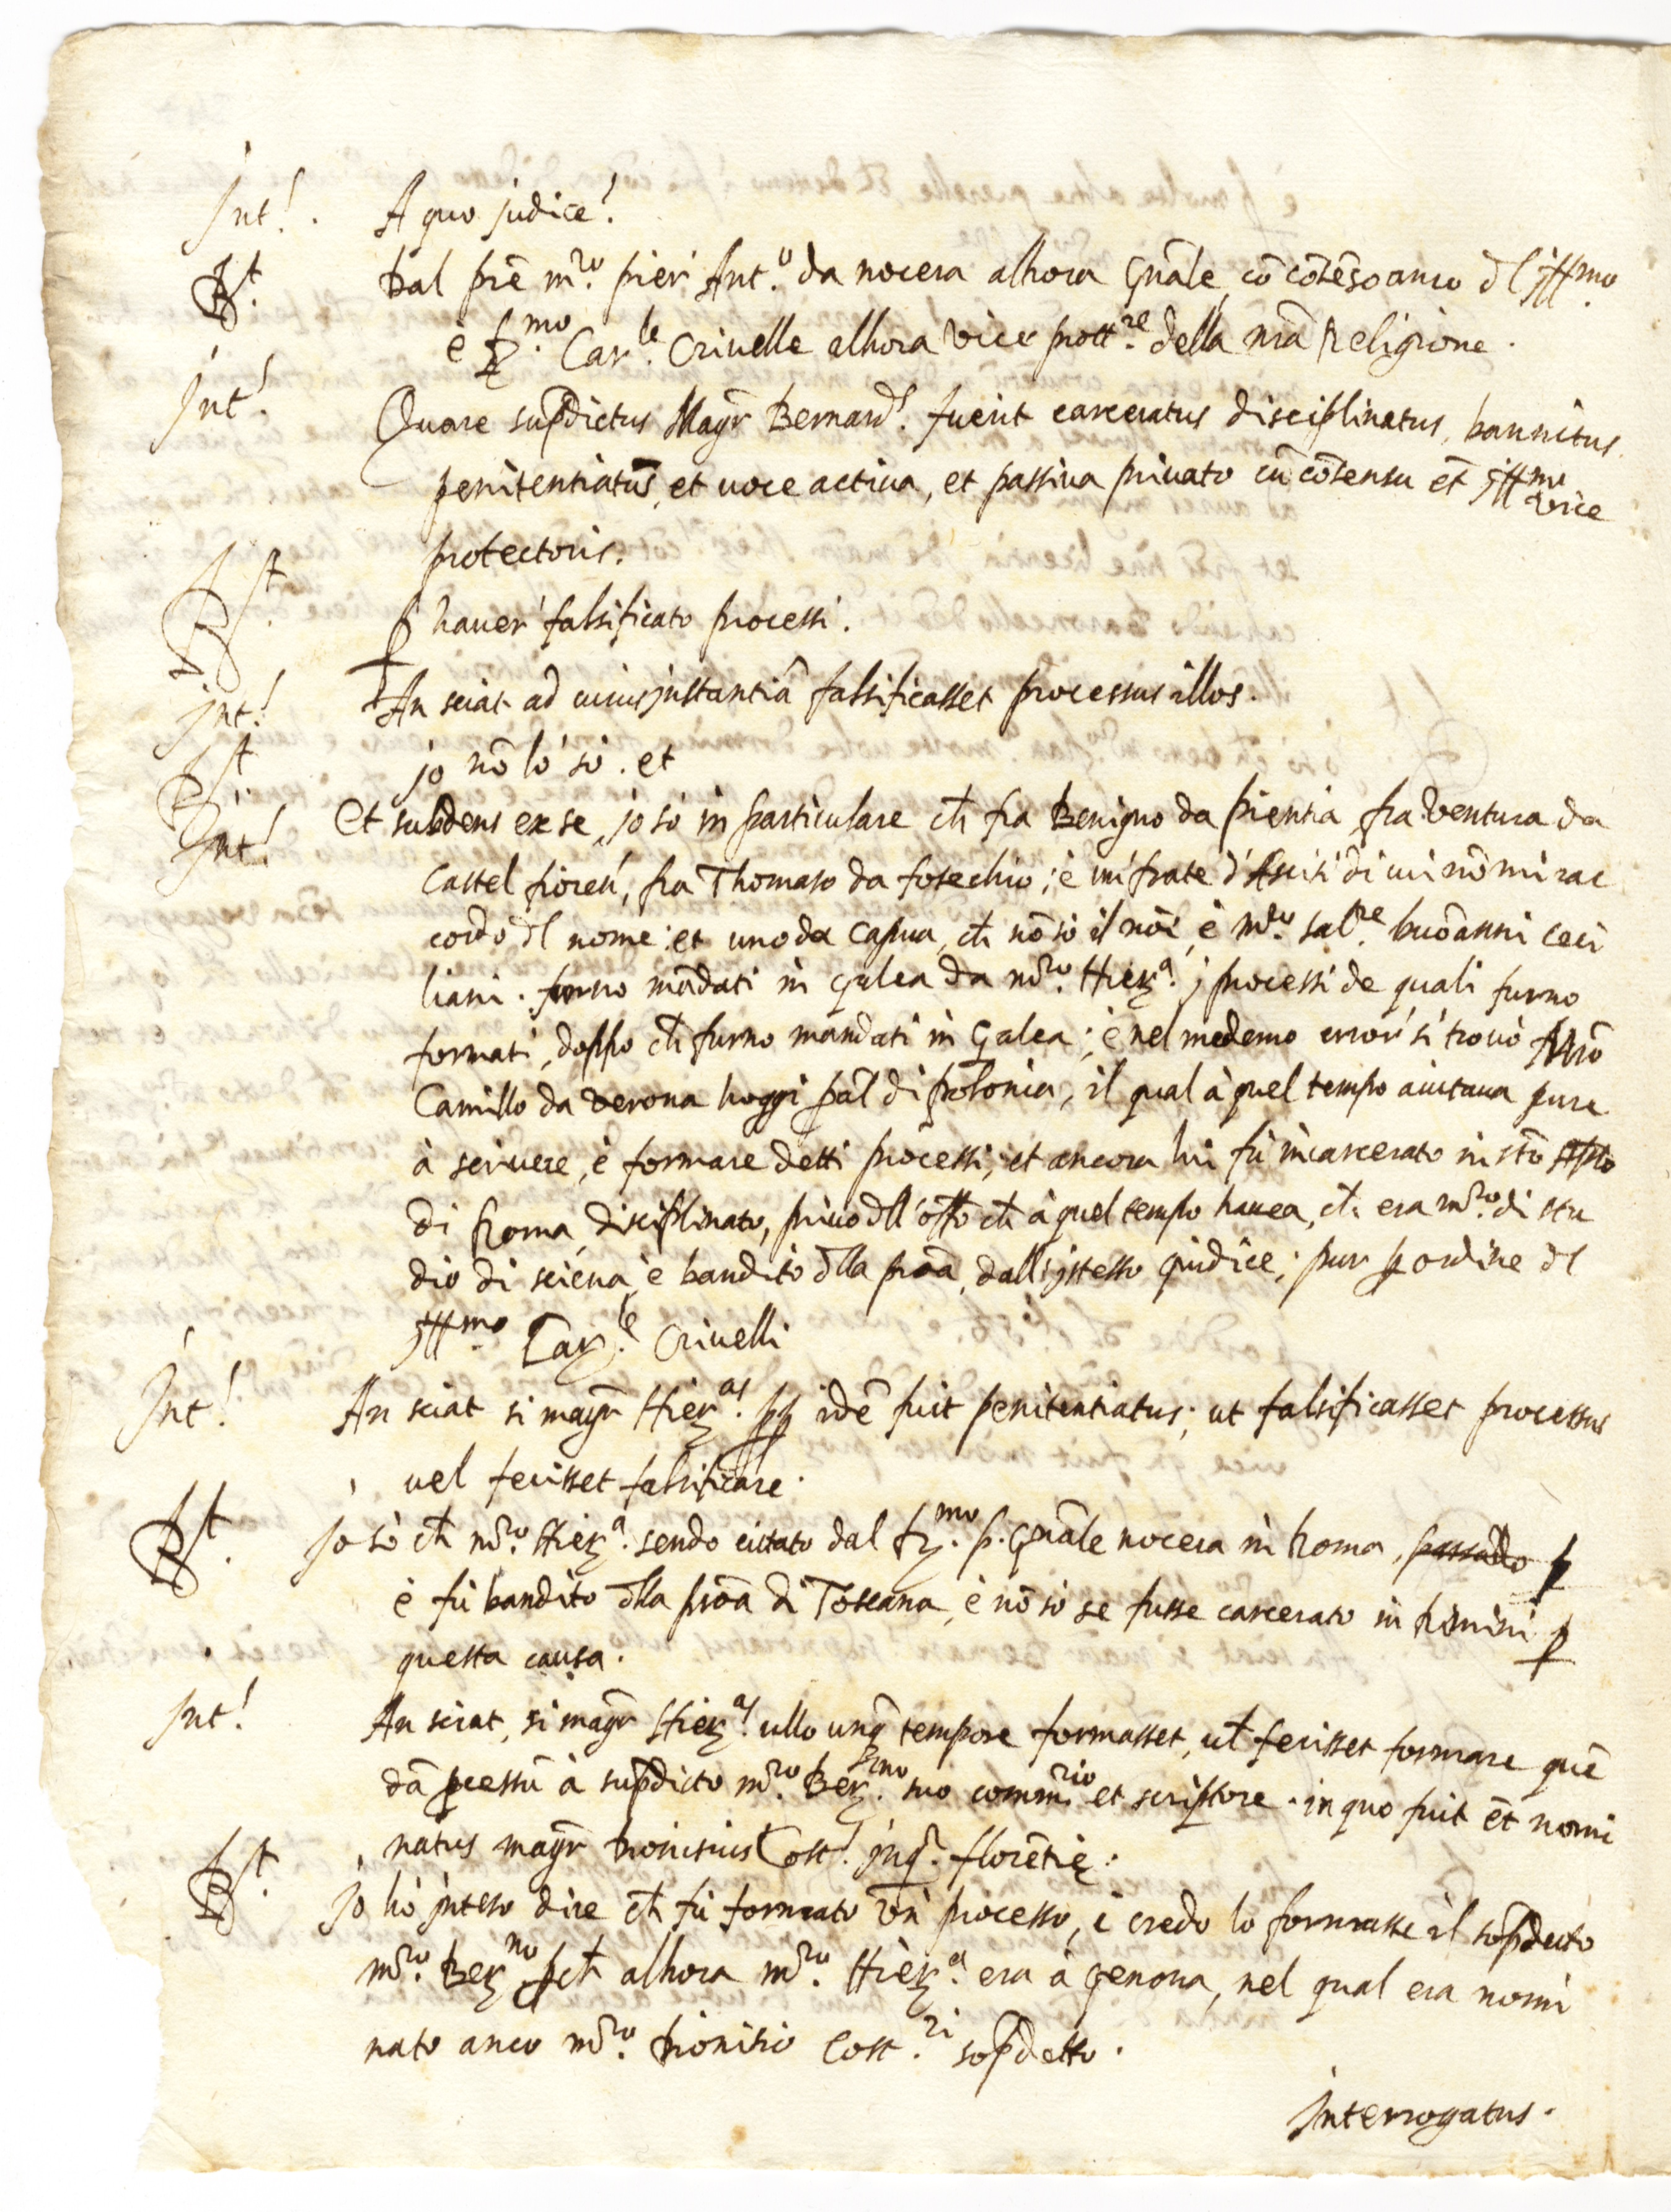 Int! A quo judice?
Rt. Dal prē m̄ro. pier Ant.o da nocera alhora Gnāle, cō cōsēso anco dl Jll.mo
è R.mo Car.le Crivelle alhora vice prott.re della nrā Religione.
Int! Quare suꝑdictus Magr̄ Bernard! fuerit carceratus disciplinatus, bannitus
penitentiatus, et voce activa, et passiva privato cū cōsensu et Jll.mi vice
protectoris.
Rt. ꝑ haver' falsificato processi.
Int! An sciat ad cuius instantiā falsificasset processus illos.
Rt. jo nō lò sò. et
Int! Et subdens ex se, jo sò in particulare ch̄ fra Benigno da pientia, fra Ventura da
Castel fioren', fra Thomaso da fosechio, è un' frate d'Ascisi di cui nō mi rac
cordo dl nome: et uno da Capua, ch̄ nō sò il nōe, è m̄ro. Sal.re buōanni ceci
liani. furno mādati in galea da m̄ro. Hier.a, j processi de quali furno
formati, doppo ch̄ furno mandati in Galea; è nel medemo error' si trovò
Camillo da Verona hoggi ꝓāl di Polonia, il qual à quel tempo aiutava pure
à scrivere, è formare detti processi, et ancora lui fù incarcerato in stō Apto
di Roma, disciplinato, privo dll'offō ch̄ à quel tempo havea, ch̄ era m̄ro. di stu
dio di sciena, è bandito dlla ꝓoā, dall'istesso giudice; pur ꝑ ordine dl
Jll.mo Car.le Crivelli
Int! An sciat si magr̄ Hier.as ꝑꝑ idē fuit penitentiatus; ut falsificasset processus
vel fecisset falsificare.
Rt. Jo sò ch̄ m̄ro. Hier.a sendo cittato dal R.mo p. Gnāle nocera in Roma, passato
è fù bandito dlla ꝓoā di Toscana, è nō sò se fusse carcerato in Rimini ꝑ
questa causa.
Int! An sciat, si magr̄ Hier.as ullo unq̄ tempore formasset, ul̄ fecisset formare quē
dā ꝓcessū à suꝑdicto m̄ro Ber.mo suo comm.rio et scriptore. in quo fuit et nomi
natus magr̄ Dionisius Cost! jnq̄r. florētię.
Rt. Jo hò inteso dire ch̄ fù formato un' processo, è credo lo formasse il soꝑdecto
m̄ro. Ber.no ꝑch̄ alhora m̄ro. Hier.a era à genova, nel qual era nomi
nato anco m̄ro. Dionisio Cost.ri soꝑdetto.
Interrogatus.